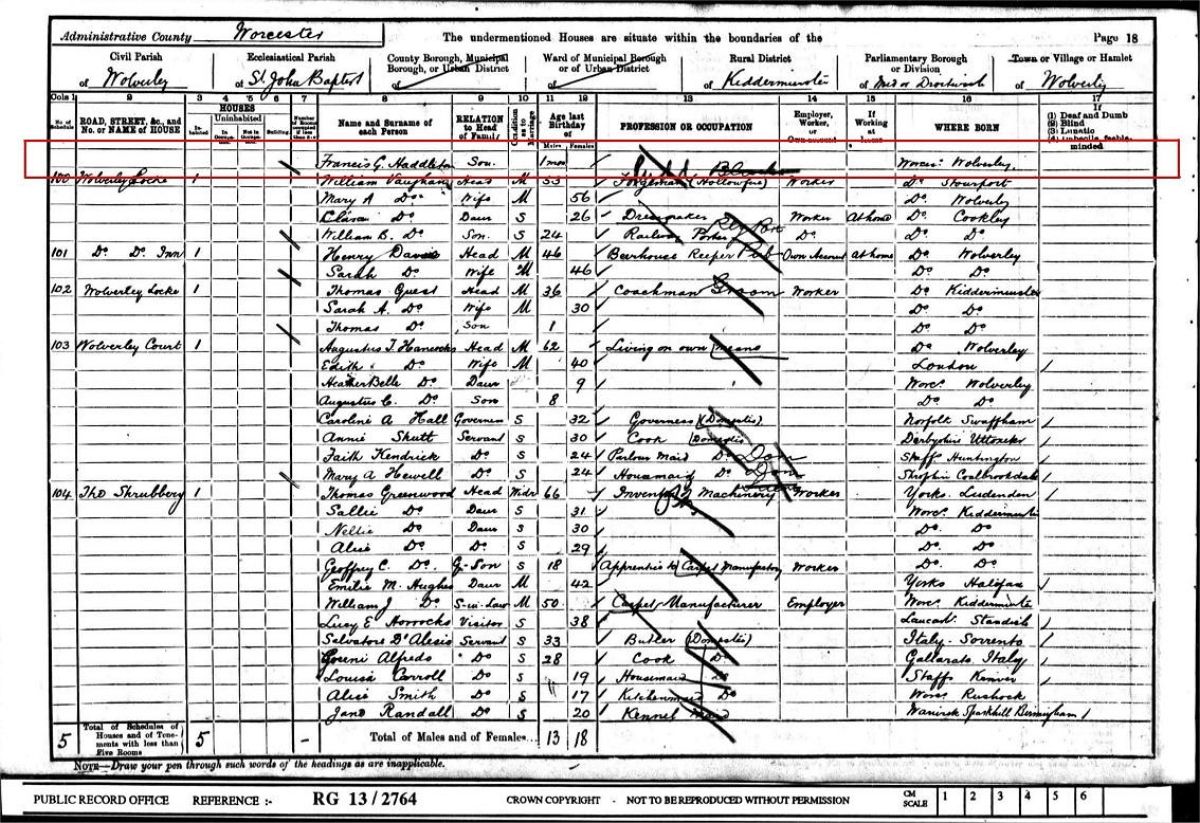 Administrative County Worcester The undermentioned Houses are situate within the boundaries of the Page 18
Civil Parish of Wolverley Ecclesiastical Parish of St John Baptist County Borough, Municipal Borough, or Urban District Ward of Municipal Borough or of Urban District Rural District of Kidderminster Parliamentary Borough or Division of Mid or Droitwich Town or Village or Hamlet of Wolverley
Cols 1 2 3 4 5 6 7 8 9 10 11 12 13 14 15 16 17
No. of Schedule ROAD, STREET, &c., and No. or NAME of HOUSE HOUSES Inhabited Uninhabited Building Name and Surname of each Person RELATION to Head of Family Condition as to Marriage Age last Birthday of Males Females PROFESSION OR OCCUPATION Employer, Worker, or Own account If Working at Home WHERE BORN If (1) Deaf and Dumb (2) Blind (3) Lunatic (4) Imbecile, feeble-minded
Francis G. Haddleton Son. 1 mo Worcs. Wolverley.
100 Wolverley Locke 1 William Vaughan Head M 53 Forgeman (Hollowfire) Worker Do Stourport
Mary A Do Wife M 56 Do Wolverley
Clara Do Daur S 26 Dressmaker Worker At home Do Cookley
William B. Do Son. S 24 Railway Porter Do Do Do
101 Do Do Inn 1 Henry Davis Head M 46 Beerhouse Keeper Pub Own Account at home Do Wolverley
Sarah Do Wife M 46 Do Do
102 Wolverley Locke 1 Thomas Guest Head M 36 Coachman Groom Worker Do Kidderminster
Sarah A. Do Wife M 30 Do Do
Thomas Do Son 1 Do Do
103 Wolverley Court 1 Augustus T. Hancocks Head M 62 Living on own means Do Wolverley
Edith Do Wife M 40 London
HeatherBelle Do Daur 9 Worc. Wolverley
Augustus C. Do Son 8 Do Do
Caroline A Hall Governess S 32 Governess (Domestic) Norfolk Swaffham
Annie Shutt Servant S 30 Cook (Domestic) Derbyshire Uttoxeter
Faith Kendrick Do S 24 Parlour Maid Do Staff Huntington
Mary A Hewell Do S 24 Housemaid Do Shropshire Coalbrookdale
104 The Shrubbery 1 Thomas Greenwood Head Widr 66 Inventor of Machinery Worker Yorks. Ludenden
Sallie Do Daur S 31 Worc. Kidderminster
Nellie Do Daur S 30 Do Do
Alice Do Do S 29 Do Do
Geoffrey C. Do G-Son S 18 Apprentice to Carpet Manufactory Worker Do Do
Emilie M. Hughes Daur M 42 Yorks Halifax
William J Do S-in-Law M 50 Carpet Manufacturer Employer Worc. Kidderminster
Lucy E Horrocks Visitor S 38 Lancast. Standish
Salvatore D'Alesio Servant S 33 Butler (Domestic) Italy. Sorrento
Goreni Alfredo Do S 28 Cook Do Gallarate Italy
Louisa Carroll Do S 19 Housemaid Do Staffs Kinver
Alice Smith Do S 17 Kitchenmaid Do Worc Rushock
Jane Randall Do S 20 Kennel Maid Warwick Sparkhill Birmingham
5 Total of Schedules of Houses and of Tenements with less than Five Rooms 5 - Total of Males and of Females... 13 18
NOTE—Draw your pen through such words of the headings as are inapplicable.
PUBLIC RECORD OFFICE REFERENCE :- RG 13 / 2764 CROWN COPYRIGHT - NOT TO BE REPRODUCED WITHOUT PERMISSION CM SCALE 1 2 3 4 5 6